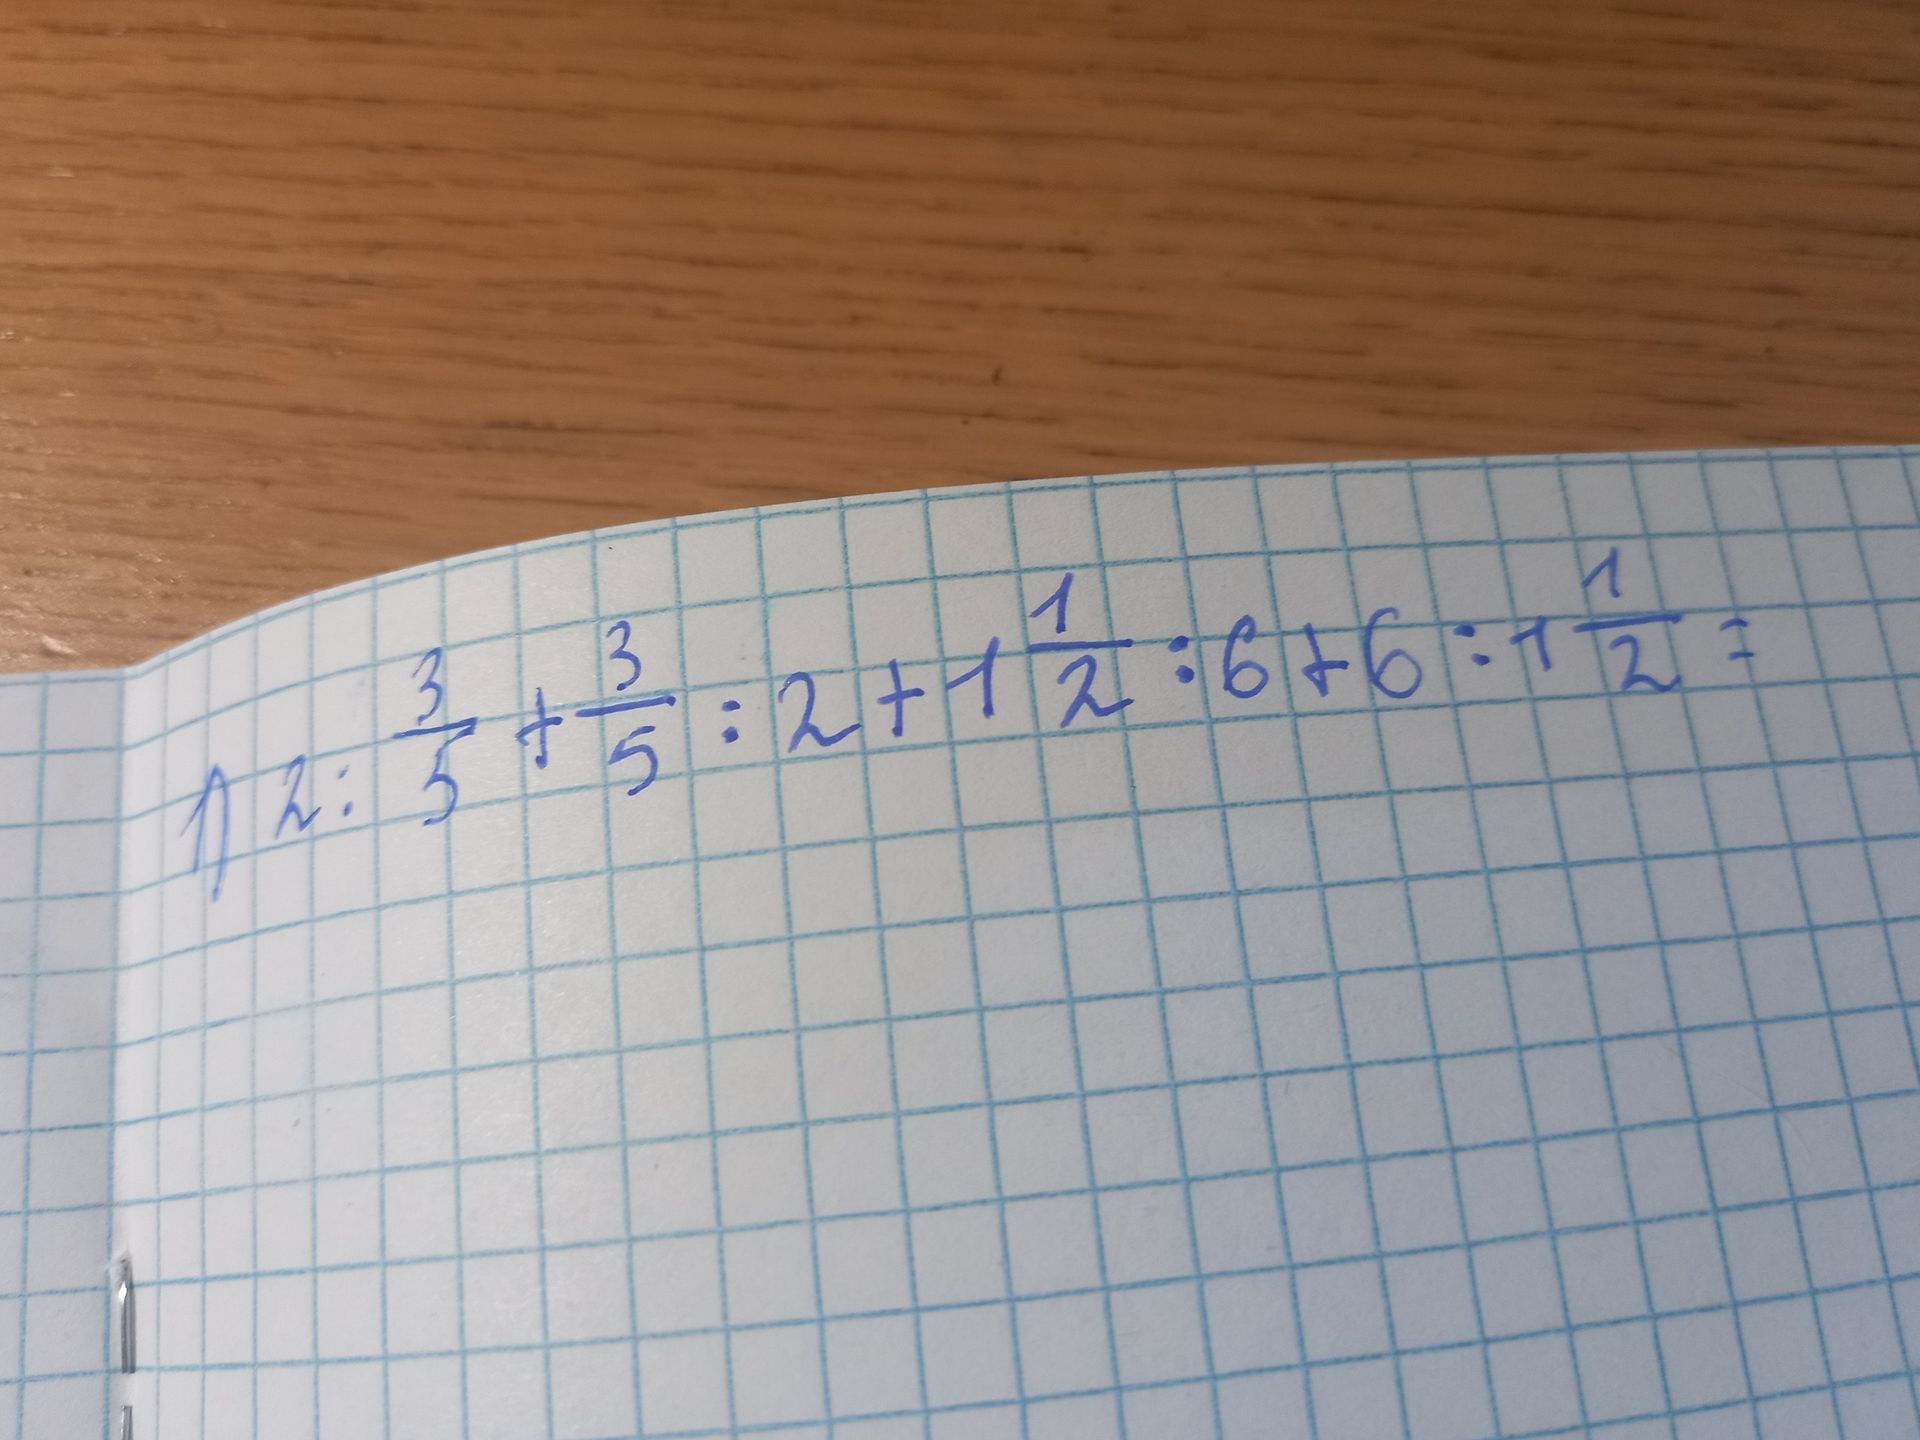 1) 2 : 3/5 + 3/5 : 2 + 1 1/2 : 6 + 6 : 1 1/2 =